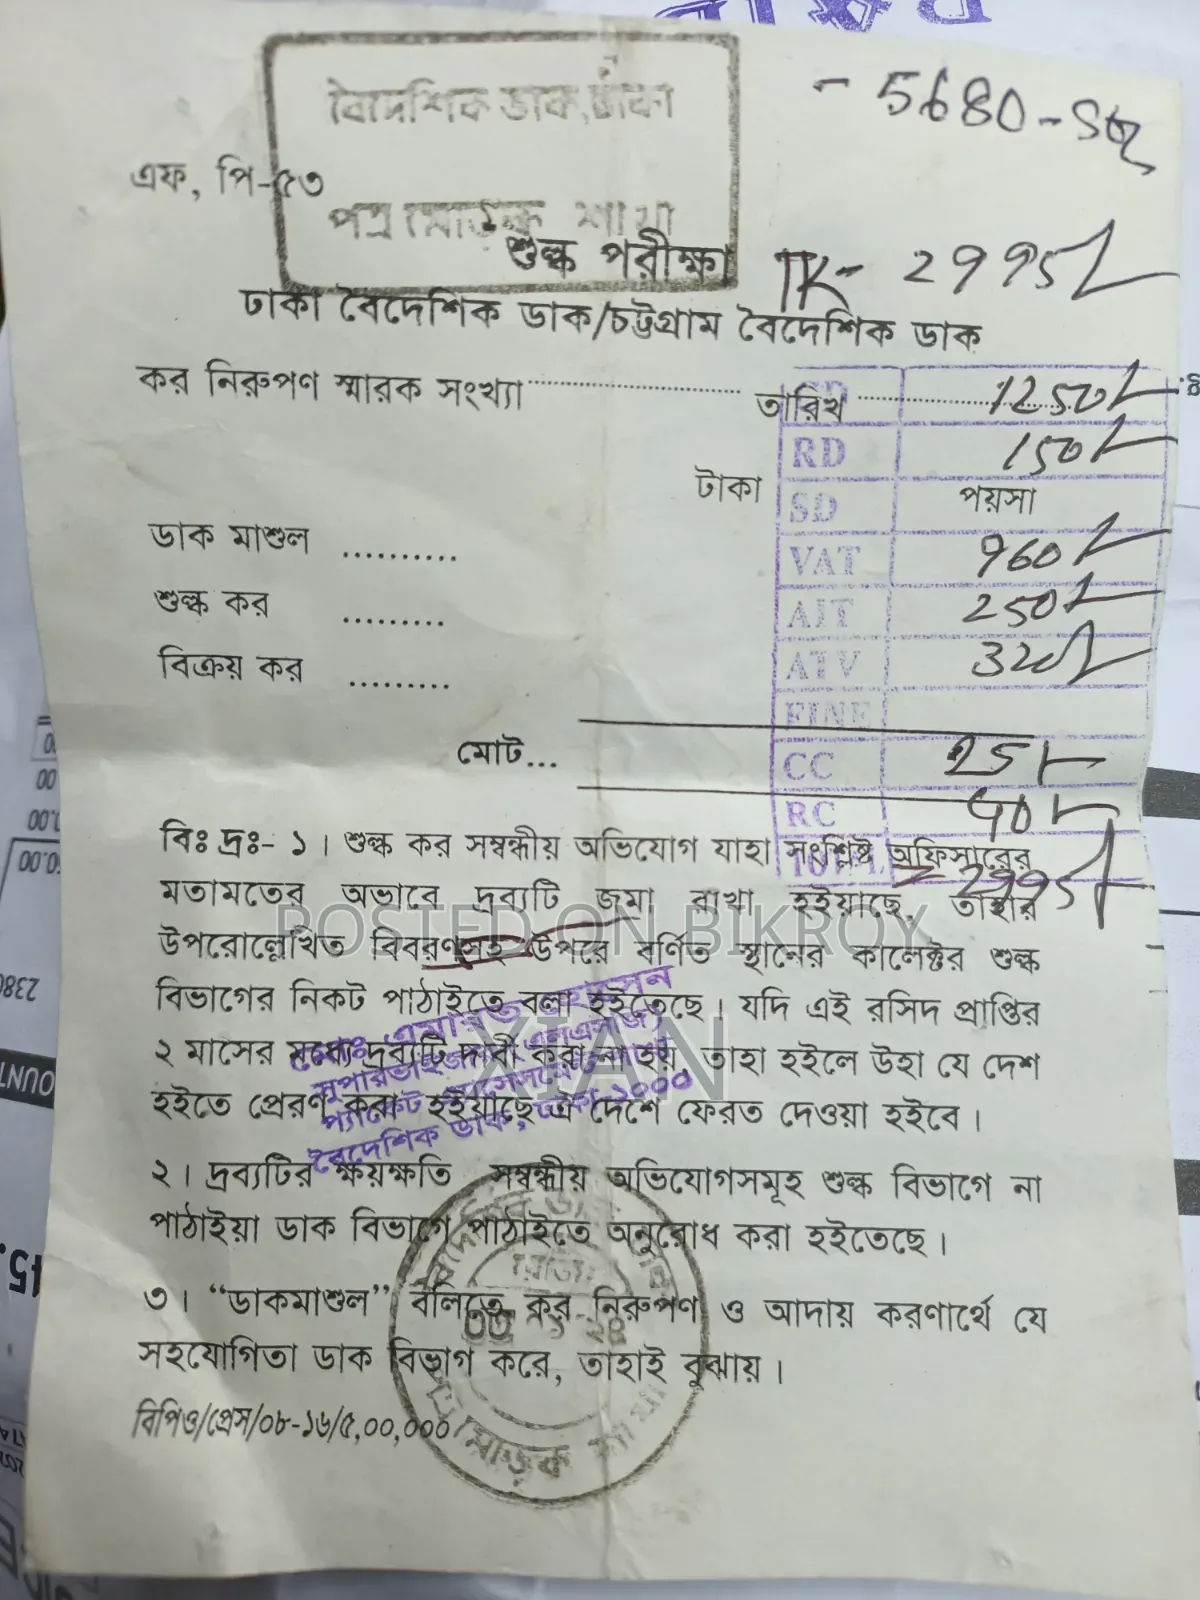 বৈদেশিক ডাক, ঢাকা
- 5680-
এফ, পি-৫৩
পত্র মোড়ক শাখা
শুল্ক পরীক্ষা
TK- 2995/-
ঢাকা বৈদেশিক ডাক/চট্টগ্রাম বৈদেশিক ডাক
কর নিরুপণ স্মারক সংখ্যা ........................ তারিখ ........................
1250/-
RD 150/-
টাকা পয়সা
SD
ডাক মাশুল ..........
VAT 960/-
শুল্ক কর .........
AIT 250/-
বিক্রয় কর .........
ATV 320/-
FINE
মোট...
CC 25/-
RC 40/-
TOTAL = 2995/-
বিঃ দ্রঃ- ১। শুল্ক কর সম্বন্ধীয় অভিযোগ যাহা সংশ্লিষ্ট অফিসারের
মতামতের অভাবে দ্রব্যটি জমা রাখা হইয়াছে, তাহার
উপরোল্লেখিত বিবরণসহ উপরে বর্ণিত স্থানের কালেক্টর শুল্ক
বিভাগের নিকট পাঠাইতে বলা হইতেছে। যদি এই রসিদ প্রাপ্তির
২ মাসের মধ্যে দ্রব্যটি দাবী করা না হয়, তাহা হইলে উহা যে দেশ
হইতে প্রেরণ করা হইয়াছে ঐ দেশে ফেরত দেওয়া হইবে।
বৈদেশিক ডাক, ঢাকা-১০০০
POSTED ON BIKROY
XIAN
২। দ্রব্যটির ক্ষয়ক্ষতি সম্বন্ধীয় অভিযোগসমূহ শুল্ক বিভাগে না
পাঠাইয়া ডাক বিভাগে পাঠাইতে অনুরোধ করা হইতেছে।
৩। “ডাকমাশুল” বলিতে কর নিরুপণ ও আদায় করণার্থে যে
সহযোগিতা ডাক বিভাগ করে, তাহাই বুঝায়।
বিপিও/প্রেস/০৮-১৬/৫,০০,০০০
মোড়ক শাখা